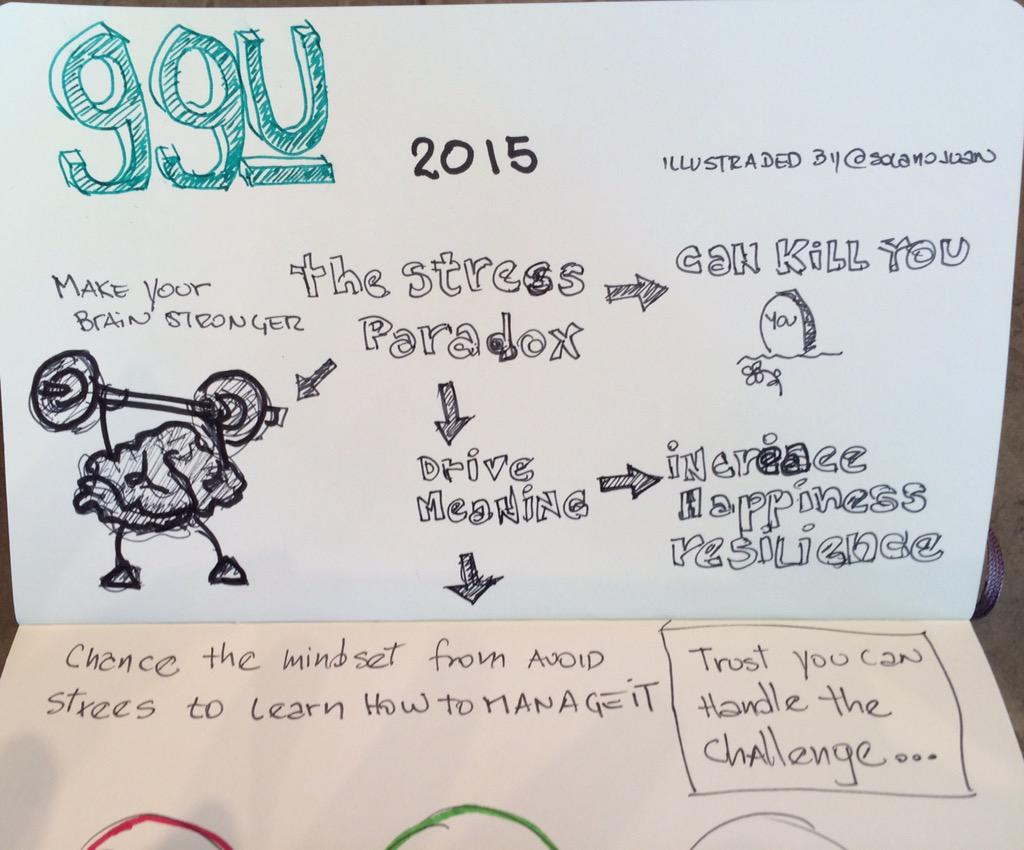 99U
2015
ILLUSTRADED BY @SOLANOJUAN
MAKE YOUR
BRAIN STRONGER
the stress
Paradox
CAN KILL YOU
YOU
Drive
MEANING
increace
Happiness
resilience
Chance the mindset from AVOID
strees to learn HOW TO MANAGE IT
Trust you can
Handle the
challenge...